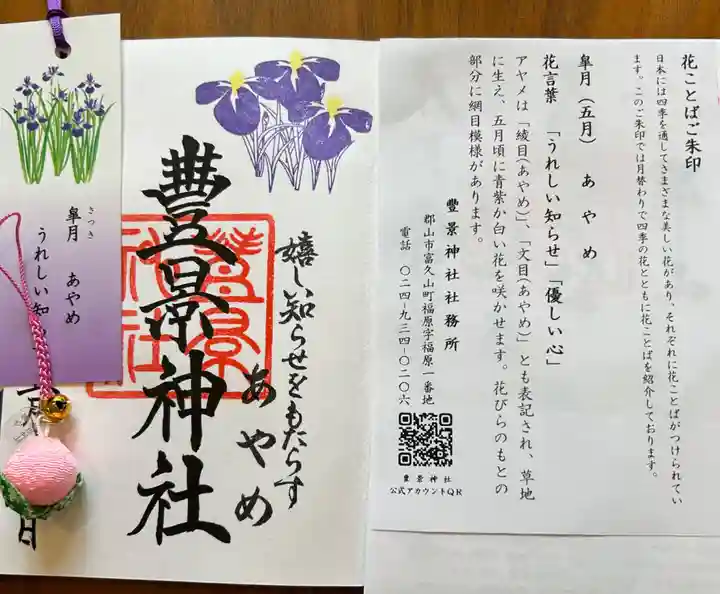 花ことばご朱印
日本には四季を通してさまざまな美しい花があり、それぞれに花ことばがつけられてい
ます。このご朱印では月替わりで四季の花とともに花ことばを紹介しております。
皐月(五月) あやめ
花言葉 「うれしい知らせ」「優しい心」
アヤメは「綾目(あやめ)、「文目(あやめ)」とも表記され、草地
に生え、五月頃に青紫か白い花を咲かせます。花びらのもとの
部分に網目模様があります。
豊景神社社務所
郡山市富久山町福原字福原一番地
電話 〇二四-九三四-〇二〇六
豊景神社
公式アカウントQR
嬉しい知らせをもたらす
あやめ
豊景神社
日
さつき
皐月 あやめ
うれしい知